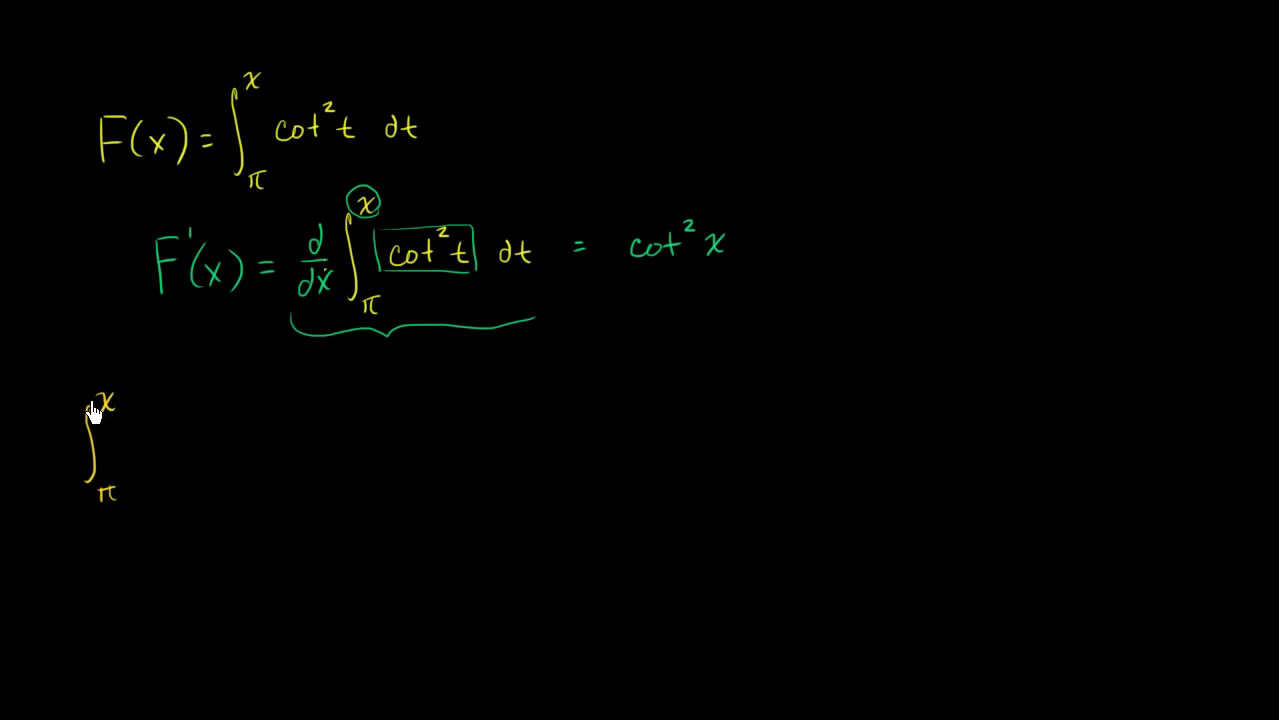 F(x) = ∫_π^x cot²t dt
F'(x) = d/dx ∫_π^x cot²t dt = cot²x
∫_π^x